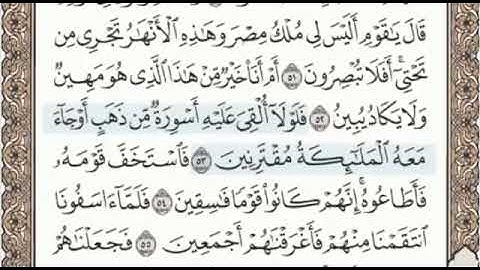 قَالَ يَٰقَوْمِ أَلَيْسَ لِى مُلْكُ مِصْرَ وَهَٰذِهِ ٱلْأَنْهَٰرُ تَجْرِى مِن
تَحْتِىٓ ۖ أَفَلَا تُبْصِرُونَ ٥١ أَمْ أَنَا۠ خَيْرٌ مِّنْ هَٰذَا ٱلَّذِى هُوَ مَهِينٌ
وَلَا يَكَادُ يُبِينُ ٥٢ فَلَوْلَآ أُلْقِىَ عَلَيْهِ أَسْوِرَةٌ مِّن ذَهَبٍ أَوْ جَآءَ
مَعَهُ ٱلْمَلَٰٓئِكَةُ مُقْتَرِنِينَ ٥٣ فَٱسْتَخَفَّ قَوْمَهُۥ
فَأَطَاعُوهُ ۚ إِنَّهُمْ كَانُوا۟ قَوْمًا فَٰسِقِينَ ٥٤ فَلَمَّآ ءَاسَفُونَا
ٱنتَقَمْنَا مِنْهُمْ فَأَغْرَقْنَٰهُمْ أَجْمَعِينَ ٥٥ فَجَعَلْنَٰهُمْ